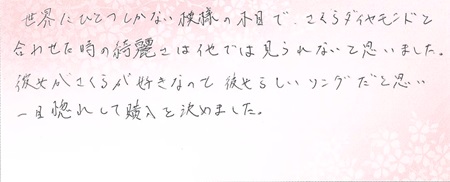 世界にひとつしかない模様の木目で、さくらダイヤモンドと
合わせた時の綺麗さは他では見られないと思いました。
彼女がさくらが好きなので彼女らしいリングだと思い
一目惚れして購入を決めました。